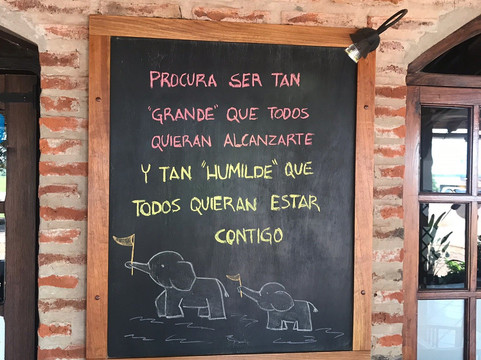 PROCURA SER TAN
"GRANDE" QUE TODOS
QUIERAN ALCANZARTE
Y TAN "HUMILDE" QUE
TODOS QUIERAN ESTAR
CONTIGO